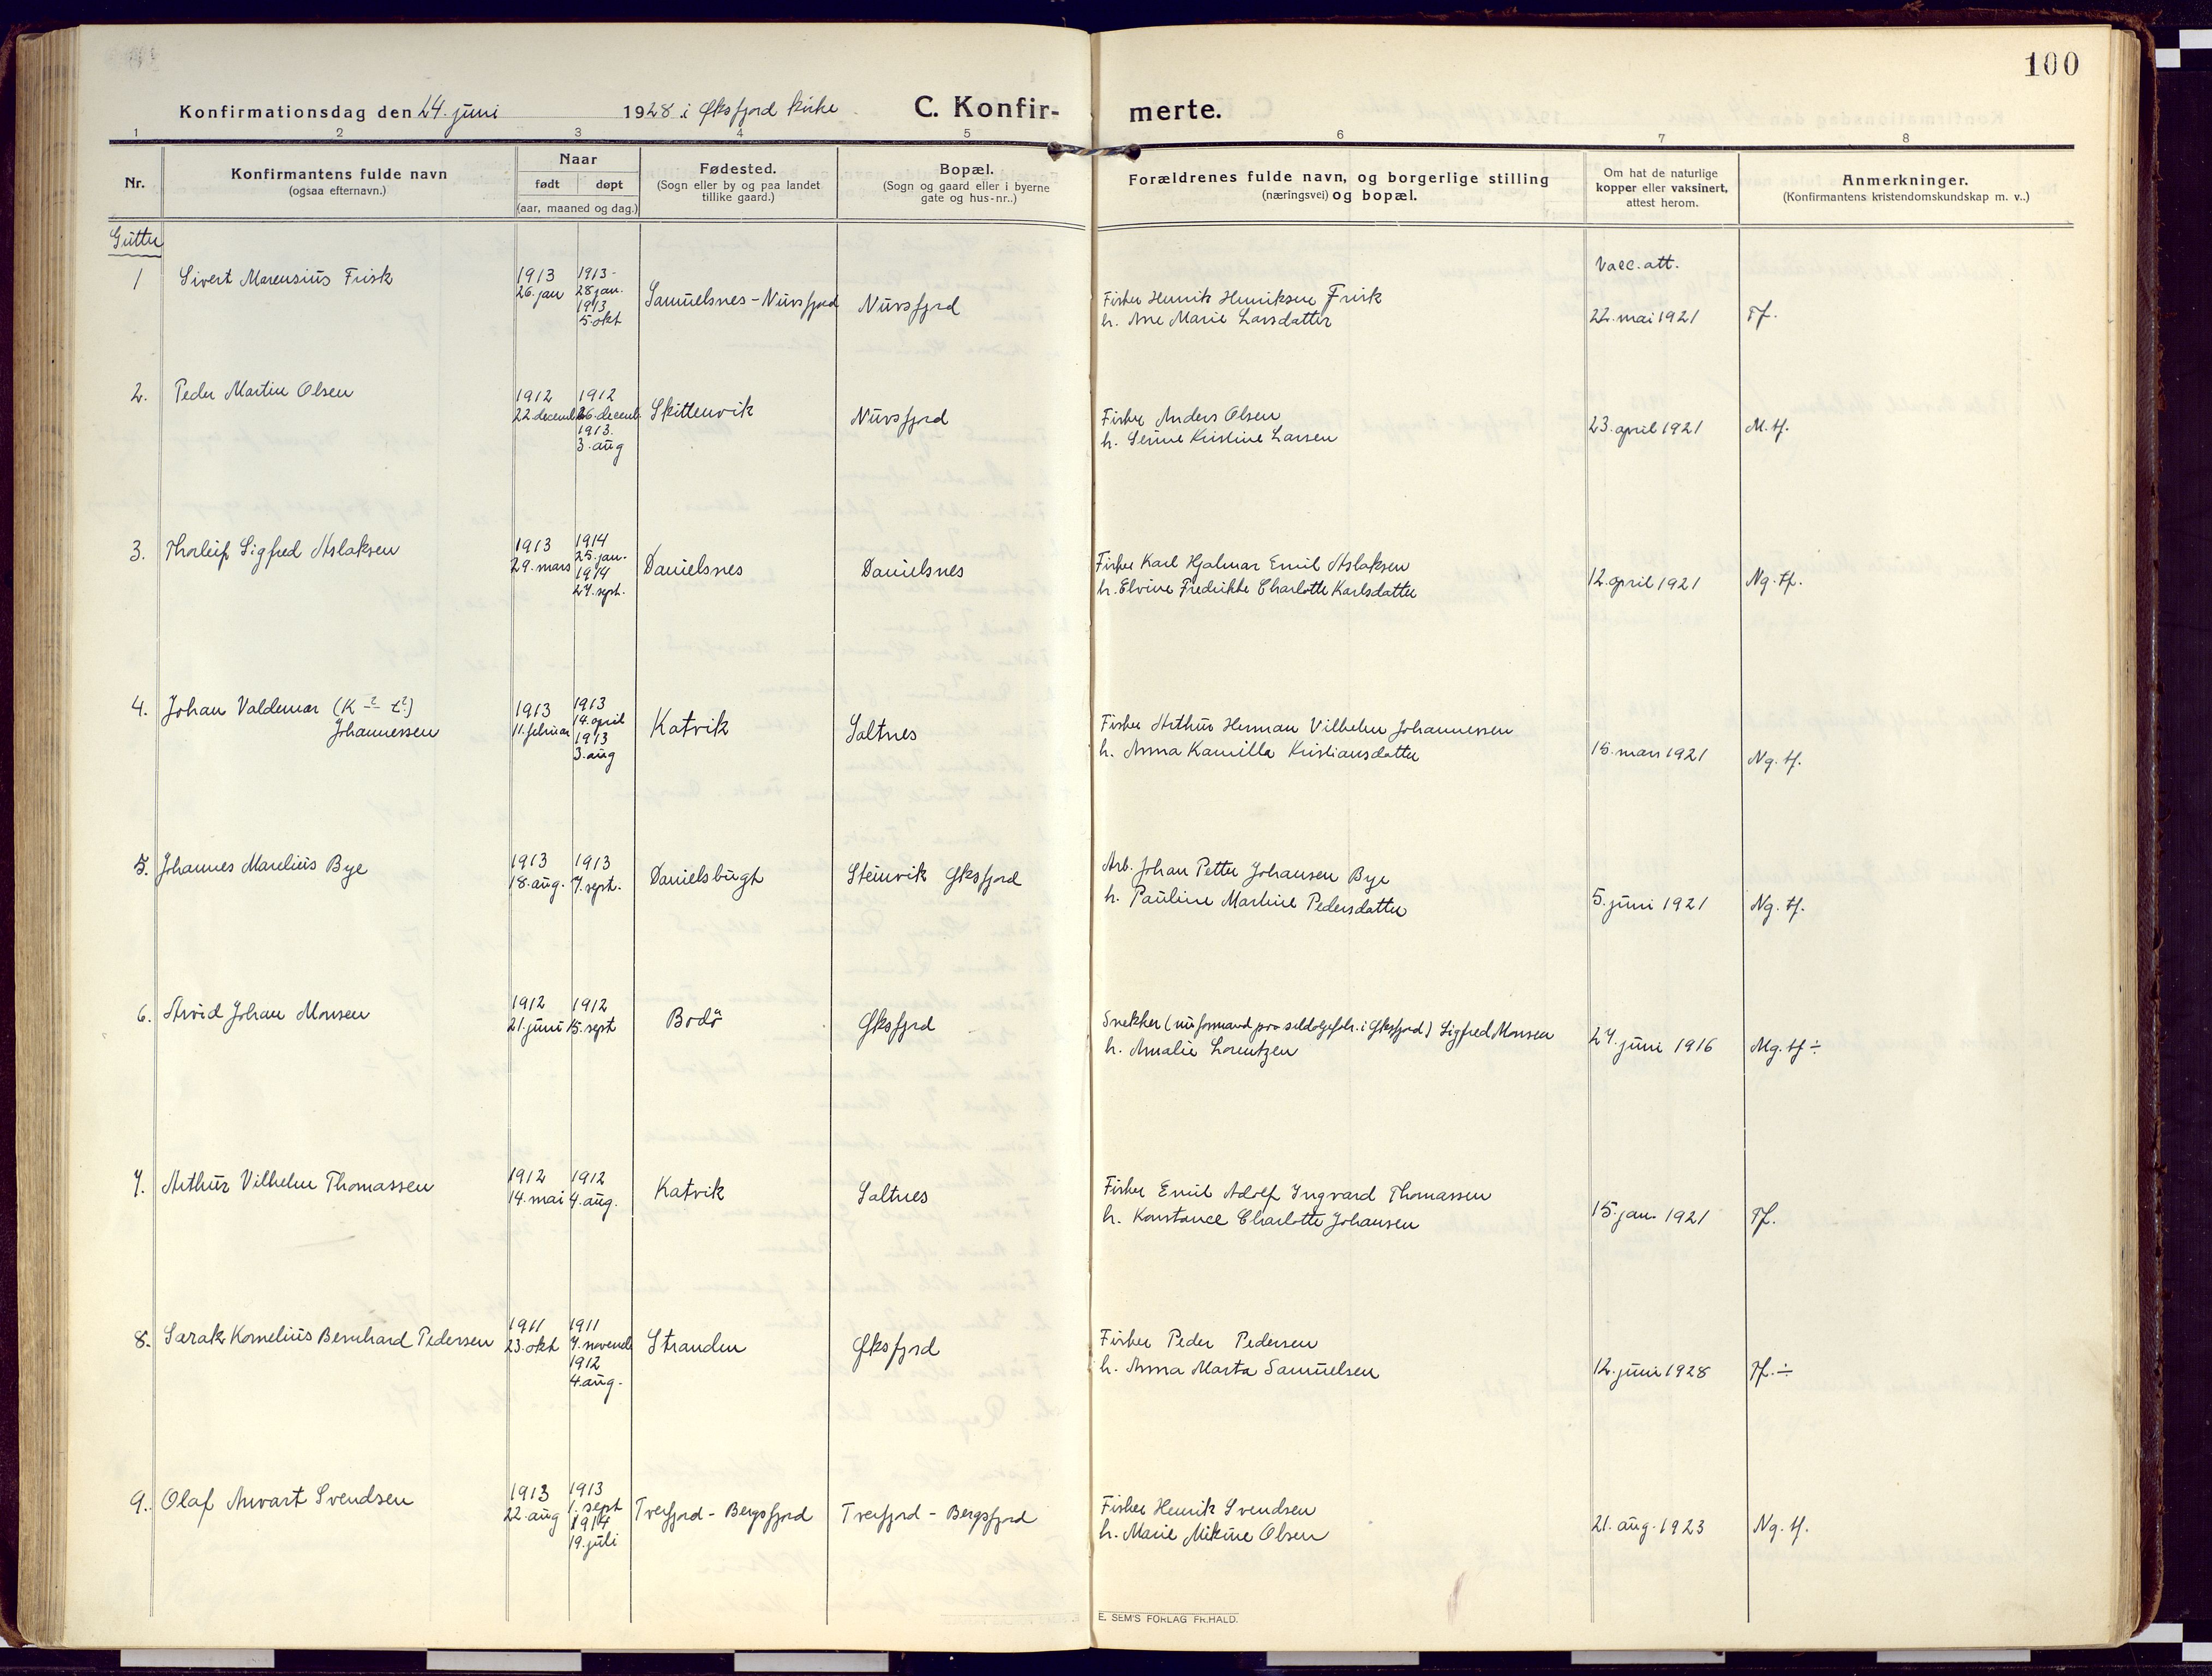 100
Konfirmationsdag den 24. juni 1928 i Øksfjord kirke C. Konfirmerte.
1 2 3 4 5 6 7 8
Nr.
Konfirmantens fulde navn
(ogsaa efternavn.)
Naar
født døpt
(aar, maaned og dag.)
Fødested.
(Sogn eller by og paa landet
tillike gaard.)
Bopæl.
(Sogn og gaard eller i byerne
gate og hus-nr..)
Forældrenes fulde navn, og borgerlige stilling
(næringsvei) og bopæl.
Om hat de naturlige
kopper eller vaksinert,
attest herom.
Anmerkninger.
(Konfirmantens kristendomskundskap m. v..)
Gutter
Vacc. att.
1 Sivert Marensius Frisk
1913 26. jan
1913 - 28 jan.
1913 5. okt
Samuelsnes - Nuvsfjord
Nuvsfjord
Fisker Henrik Henriksen Frisk
h. Ane Marie Larsdatter
22. mai 1921
Tf.
2. Peder Martin Olsen
1912 22 decemb
1912 26. decemb
1913. 3. aug
Skittenvik
Nuvsfjord
Fisker Anders Olsen
h. Serine Kristine Larsen
23. april 1921
M. tf.
3. Thorleif Sigfred Aslaksen
1913 29. mars
1914 25. jan.
1914 27. sept.
Danielsnes
Danielsnes
Fisker Karl Hjalmar Emil Aslaksen
h. Elvine Fredrikke Charlotte Karlsdatter
12. april 1921
Ng. tf.
4. Johan Valdemar (K - t?)
Johannessen
1913 11. februar
1913 14. april
1913 3. aug
Katvik
Saltnes
Fisker Arthur Herman Vilhelm Johannessen
h. Anna Kamilla Kristiansdatter
15. mars 1921
Ng. tf.
5. Johannes Marelius Bye
1913 18. aug.
1913 7. sept.
Danielsbugt
Steinvik Øksfjord
Arb. Johan Petter Johansen Bye
h. Pauline Martine Pedersdatter
5. juni 1921
Ng. tf.
6. Arvid Johan Monsen
1912 21. juni
1912 15. sept
Bodø
Øksfjord
Snekker (nu formand paa sildoljefabr. i Øksfjord) Sigfred Monsen
h. Amalie Lorentzen
27. juni 1916
Mg. tf ÷
7. Arthur Vilhelm Thomassen
1912 14. mai
1912 4. aug.
Katvik
Saltnes
Fisker Emil Adolf Ingvard Thomassen
h. Konstance Charlotte Johansen
15. jan. 1921
Tf.
8. Sarak Kornelius Bernhard Pedersen
1911 23. okt
1911 7. novemb
1912 4. aug.
Stranden
Øksfjord
Fisker Peder Pedersen
h. Anna Marta Samuelsen
12. juni 1928
Tf. ÷
9. Olaf Anvart Svendsen
1913 22. aug
1913 1. sept
1914 19. juli
Tverfjord - Bergsfjord
Tverfjord - Bergsfjord
Fisker Henrik Svendsen
h. Marie Mikine Olsen
21. aug. 1923
Ng. tf.
E. SEM'S FORLAG FR.HALD.